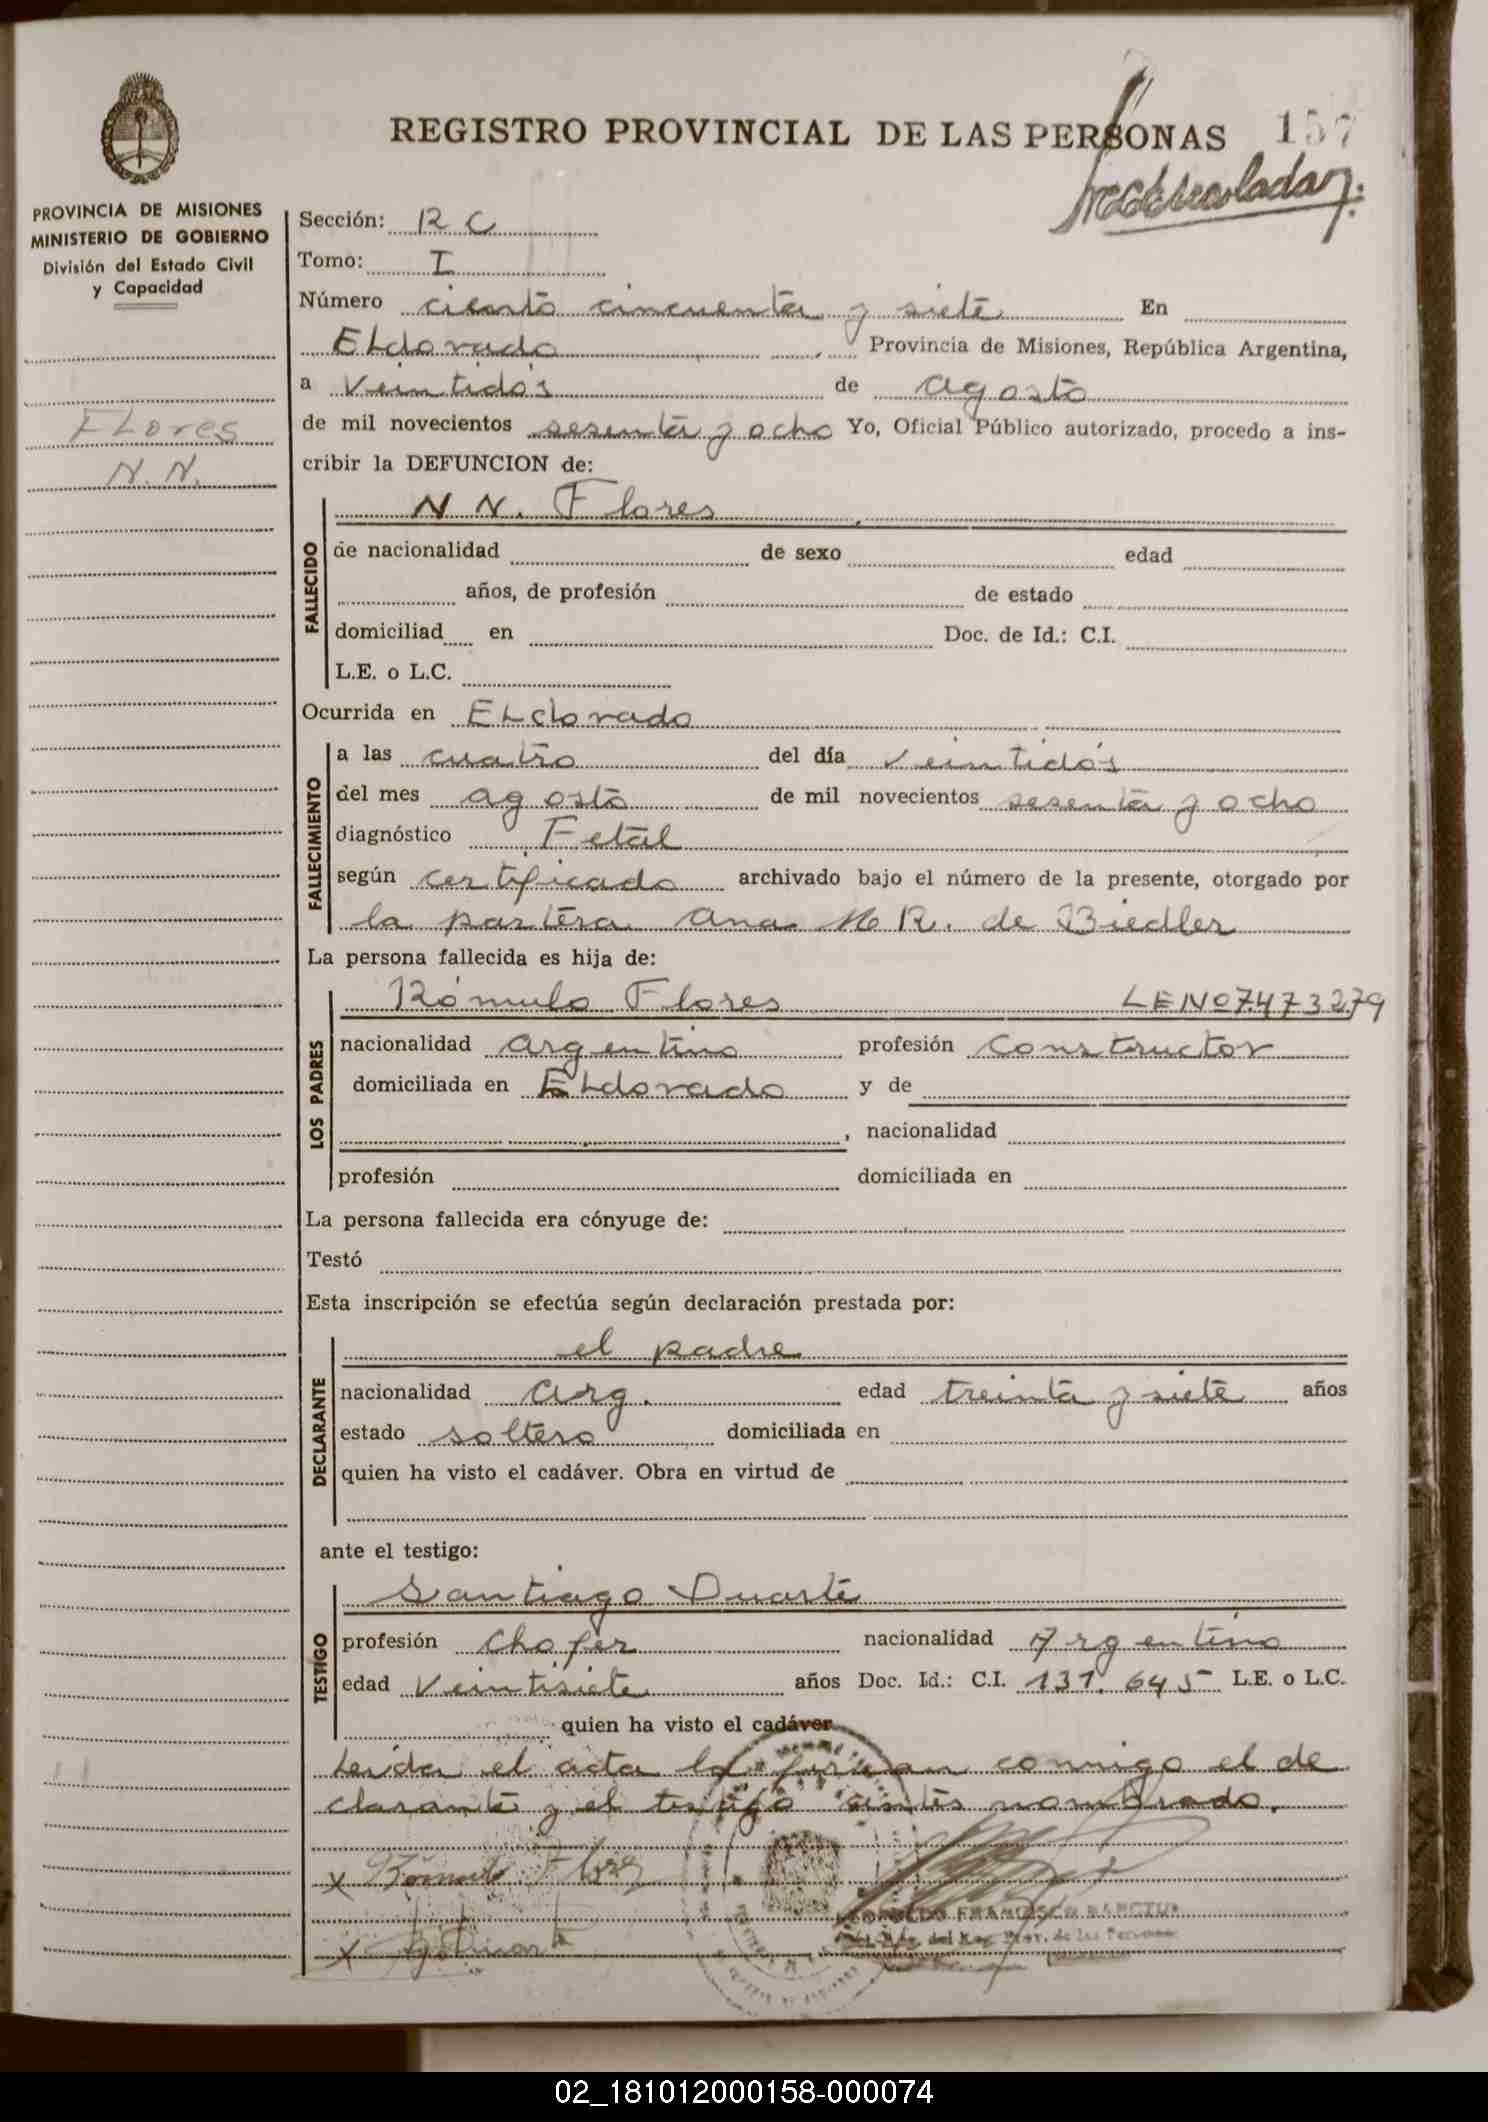 REGISTRO PROVINCIAL DE LAS PERSONAS 157
PROVINCIA DE MISIONES
MINISTERIO DE GOBIERNO
División del Estado Civil
y Capacidad
Flores
N. N.
Sección: R C
Tomo: I
Número ciento cincuenta y siete En
Eldorado Provincia de Misiones, República Argentina,
a veintidós de agosto
de mil novecientos sesenta y ocho Yo, Oficial Público autorizado, procedo a ins-
cribir la DEFUNCION de:
FALLECIDO
N N. Flores
de nacionalidad de sexo edad
años, de profesión de estado
domiciliad en Doc. de Id.: C.I.
L.E. o L.C.
Ocurrida en Eldorado
FALLECIMIENTO
a las cuatro del día veintidós
del mes agosto de mil novecientos sesenta y ocho
diagnóstico Fetal
según certificado archivado bajo el número de la presente, otorgado por
la partera Ana M R. de Biedler
La persona fallecida es hija de:
LOS PADRES
Rómulo Flores LE Nº 7.473279
nacionalidad argentino profesión constructor
domiciliada en Eldorado y de
, nacionalidad
profesión domiciliada en
La persona fallecida era cónyuge de:
Testó
Esta inscripción se efectúa según declaración prestada por:
DECLARANTE
el padre
nacionalidad arg. edad treinta y siete años
estado soltero domiciliada en
quien ha visto el cadáver. Obra en virtud de
ante el testigo:
TESTIGO
Santiago Duarte
profesión chofer nacionalidad Argentino
edad veintisiete años Doc. Id.: C.I. 131.645 L.E. o L.C.
quien ha visto el cadáver
Leida el acta la firman conmigo el de
clarante y el testigo antes nombrado.
x Rómulo Flores
x
FRANCISCO
del Reg. Prov. de las Personas
02_181012000158-000074